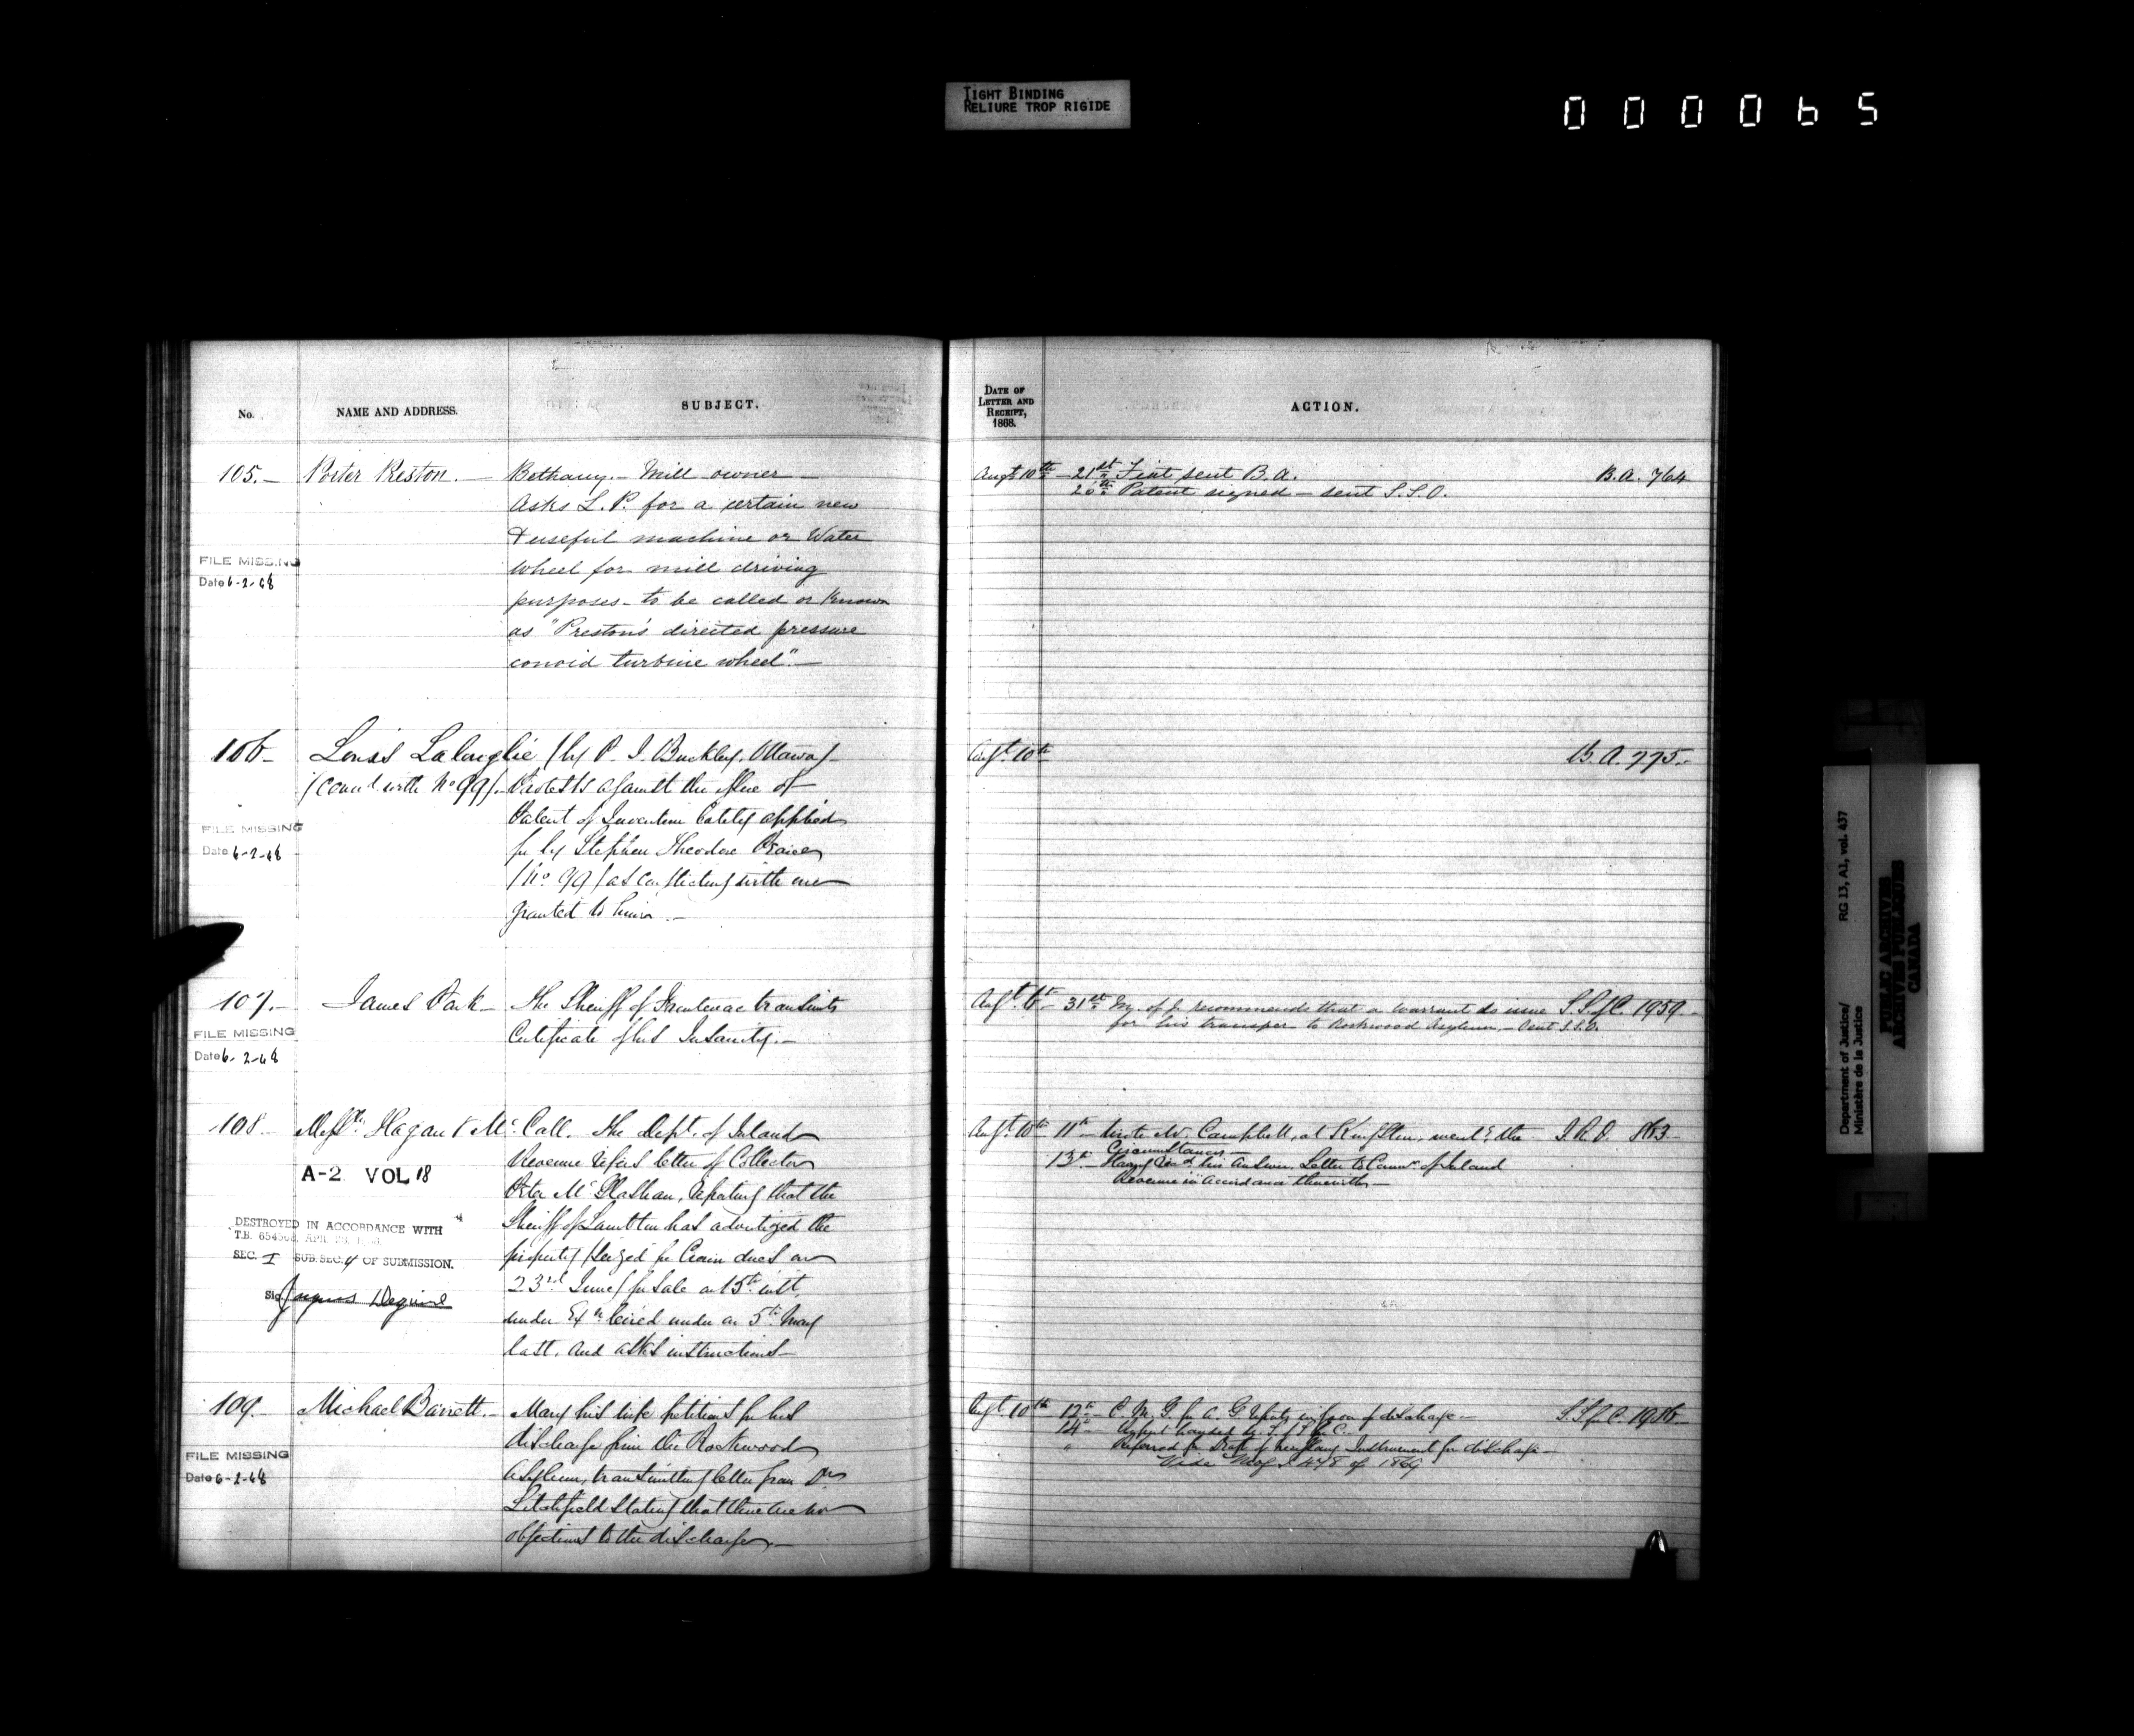 TIGHT BINDING
RELIURE TROP RIGIDE
000065
No.
NAME AND ADDRESS.
SUBJECT.
105.— Porter Preston.— Bethany.— Mill owner—
Asks L. P. for a certain new
& useful machine or Water
wheel for mill driving
purposes— to be called or known
as "Preston's directed pressure
conoid turbine wheel".—
FILE MISSING
Date 6-2-68
106— Louis (by P. I. Buckley, Ottawa)—
(Conn'd with No 99).— Protests against the issue of
Patent of Invention lately applied
for by Stephen Theodore
(No 99) as conflicting with one
granted to him.—
FILE MISSING
Date 6-2-68
107.— James Park— The Sheriff of Frontenac transmits
Certificate of his Insanity.—
FILE MISSING
Date 6-2-68
108— Messrs Hagan & McCall. The Dept. of Inland
Revenue refers letter of Collector
Peter McGlashan, reporting that the
Sheriff of Lambton has advertized the
property (seized for Crown dues on
23rd June) for sale on 15th inst,
under Exn under on 5th May
last, and asks instructions—
A-2 VOL 18
DESTROYED IN ACCORDANCE WITH
T.B. 654508,
SEC. I SUB.SEC. 4 OF SUBMISSION.
Sig
109.— Michael Barrett.— Mary his wife petitions for his
discharge from the Rockwood
Asylum, transmitting letter from Dr
Litchfield stating that there are no
objections to the discharge.—
FILE MISSING
Date 6-2-68
DATE OF
LETTER AND
RECEIPT,
1868.
ACTION.
Augt 10th— 21st Fiat sent B.A. B.A. 764
26th Patent signed— sent S.S.O.
Augt 10th B.A. 775.—
Augt 6th— 31st M. of J. recommends that a warrant do issue S.S.f.C. 1959—
for his transfer to Rockwood Asylum,— Sent S.S.O.
Augt 10th 11th Wrote Mr Campbell, at Kingston, the I.R.D. 863—
Circumstances—
13th— Having his answer. Letter to Commr of Inland
Revenue in accordance therewith—
Augt 10th 12th— C. M. G. for A. G. reports in favor of discharge.— S.S.f.C. 1956—
14th—
" Referred for Draft of necessary Instrument for discharge—
Vide 478 of 1869
Department of Justice/
Ministère de la Justice
RG 13, A1, vol. 437
PUBLIC ARCHIVES
ARCHIVES PUBLIQUES
CANADA